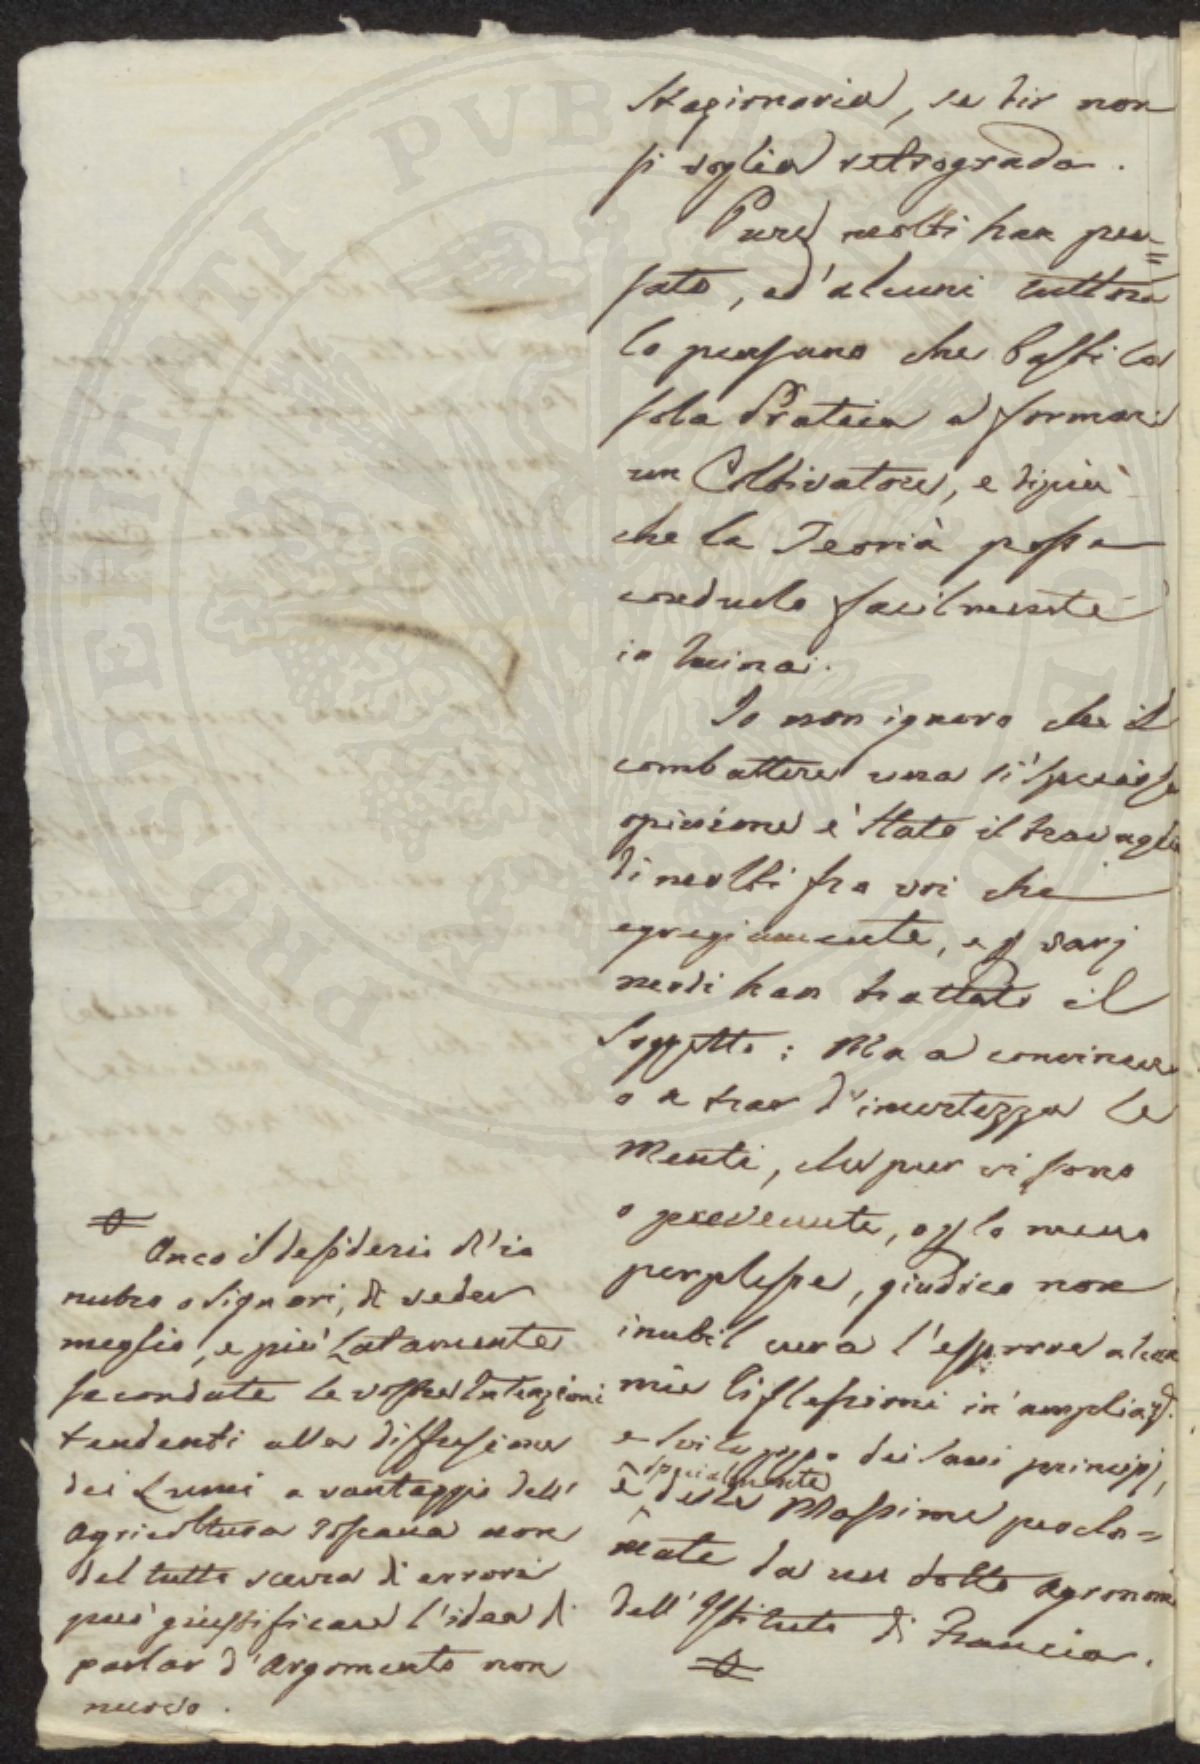 Stagionaria, se dir non
si voglia retrograda.
Pure molti han pen=
sato, ed' alcuni tuttora
lo pensano che basti la
sola Pratica a formar
un Coltivatore, e dipiù
che la Teorià possa
condurlo facilmente
in ruina.
Io non ignoro che il
combattere una sì speciosa
opinione è stato il travaglio
di molti fra voi che
egregiamente, e p varj
modi han trattato il
Soggetto: Ma a convincere
o a trar d'incertezza le
Menti, che pur vi sono
o prevenute, o p lo meno
perplesse, giudico non
inutil cura l'esporre alcune
mie riflessioni in ampliaz.
e sviluppo dei sani principj,
e specialmente delle Massime procla=
mate da un dotto Agronomo
dell'Istituto di Francia.
Anco il desiderio ch'io
nutro o Signori, di veder
meglio, e più Latamente
secondate le vostre Intenzioni
tendenti alla diffusione
dei Lumi a vantaggio dell'
Agricoltura Toscana non
del tutto scevra di errori
può giustificare l'idea di
parlar d'Argomento non
nuovo.
PROSPERITATI PUBLICAE